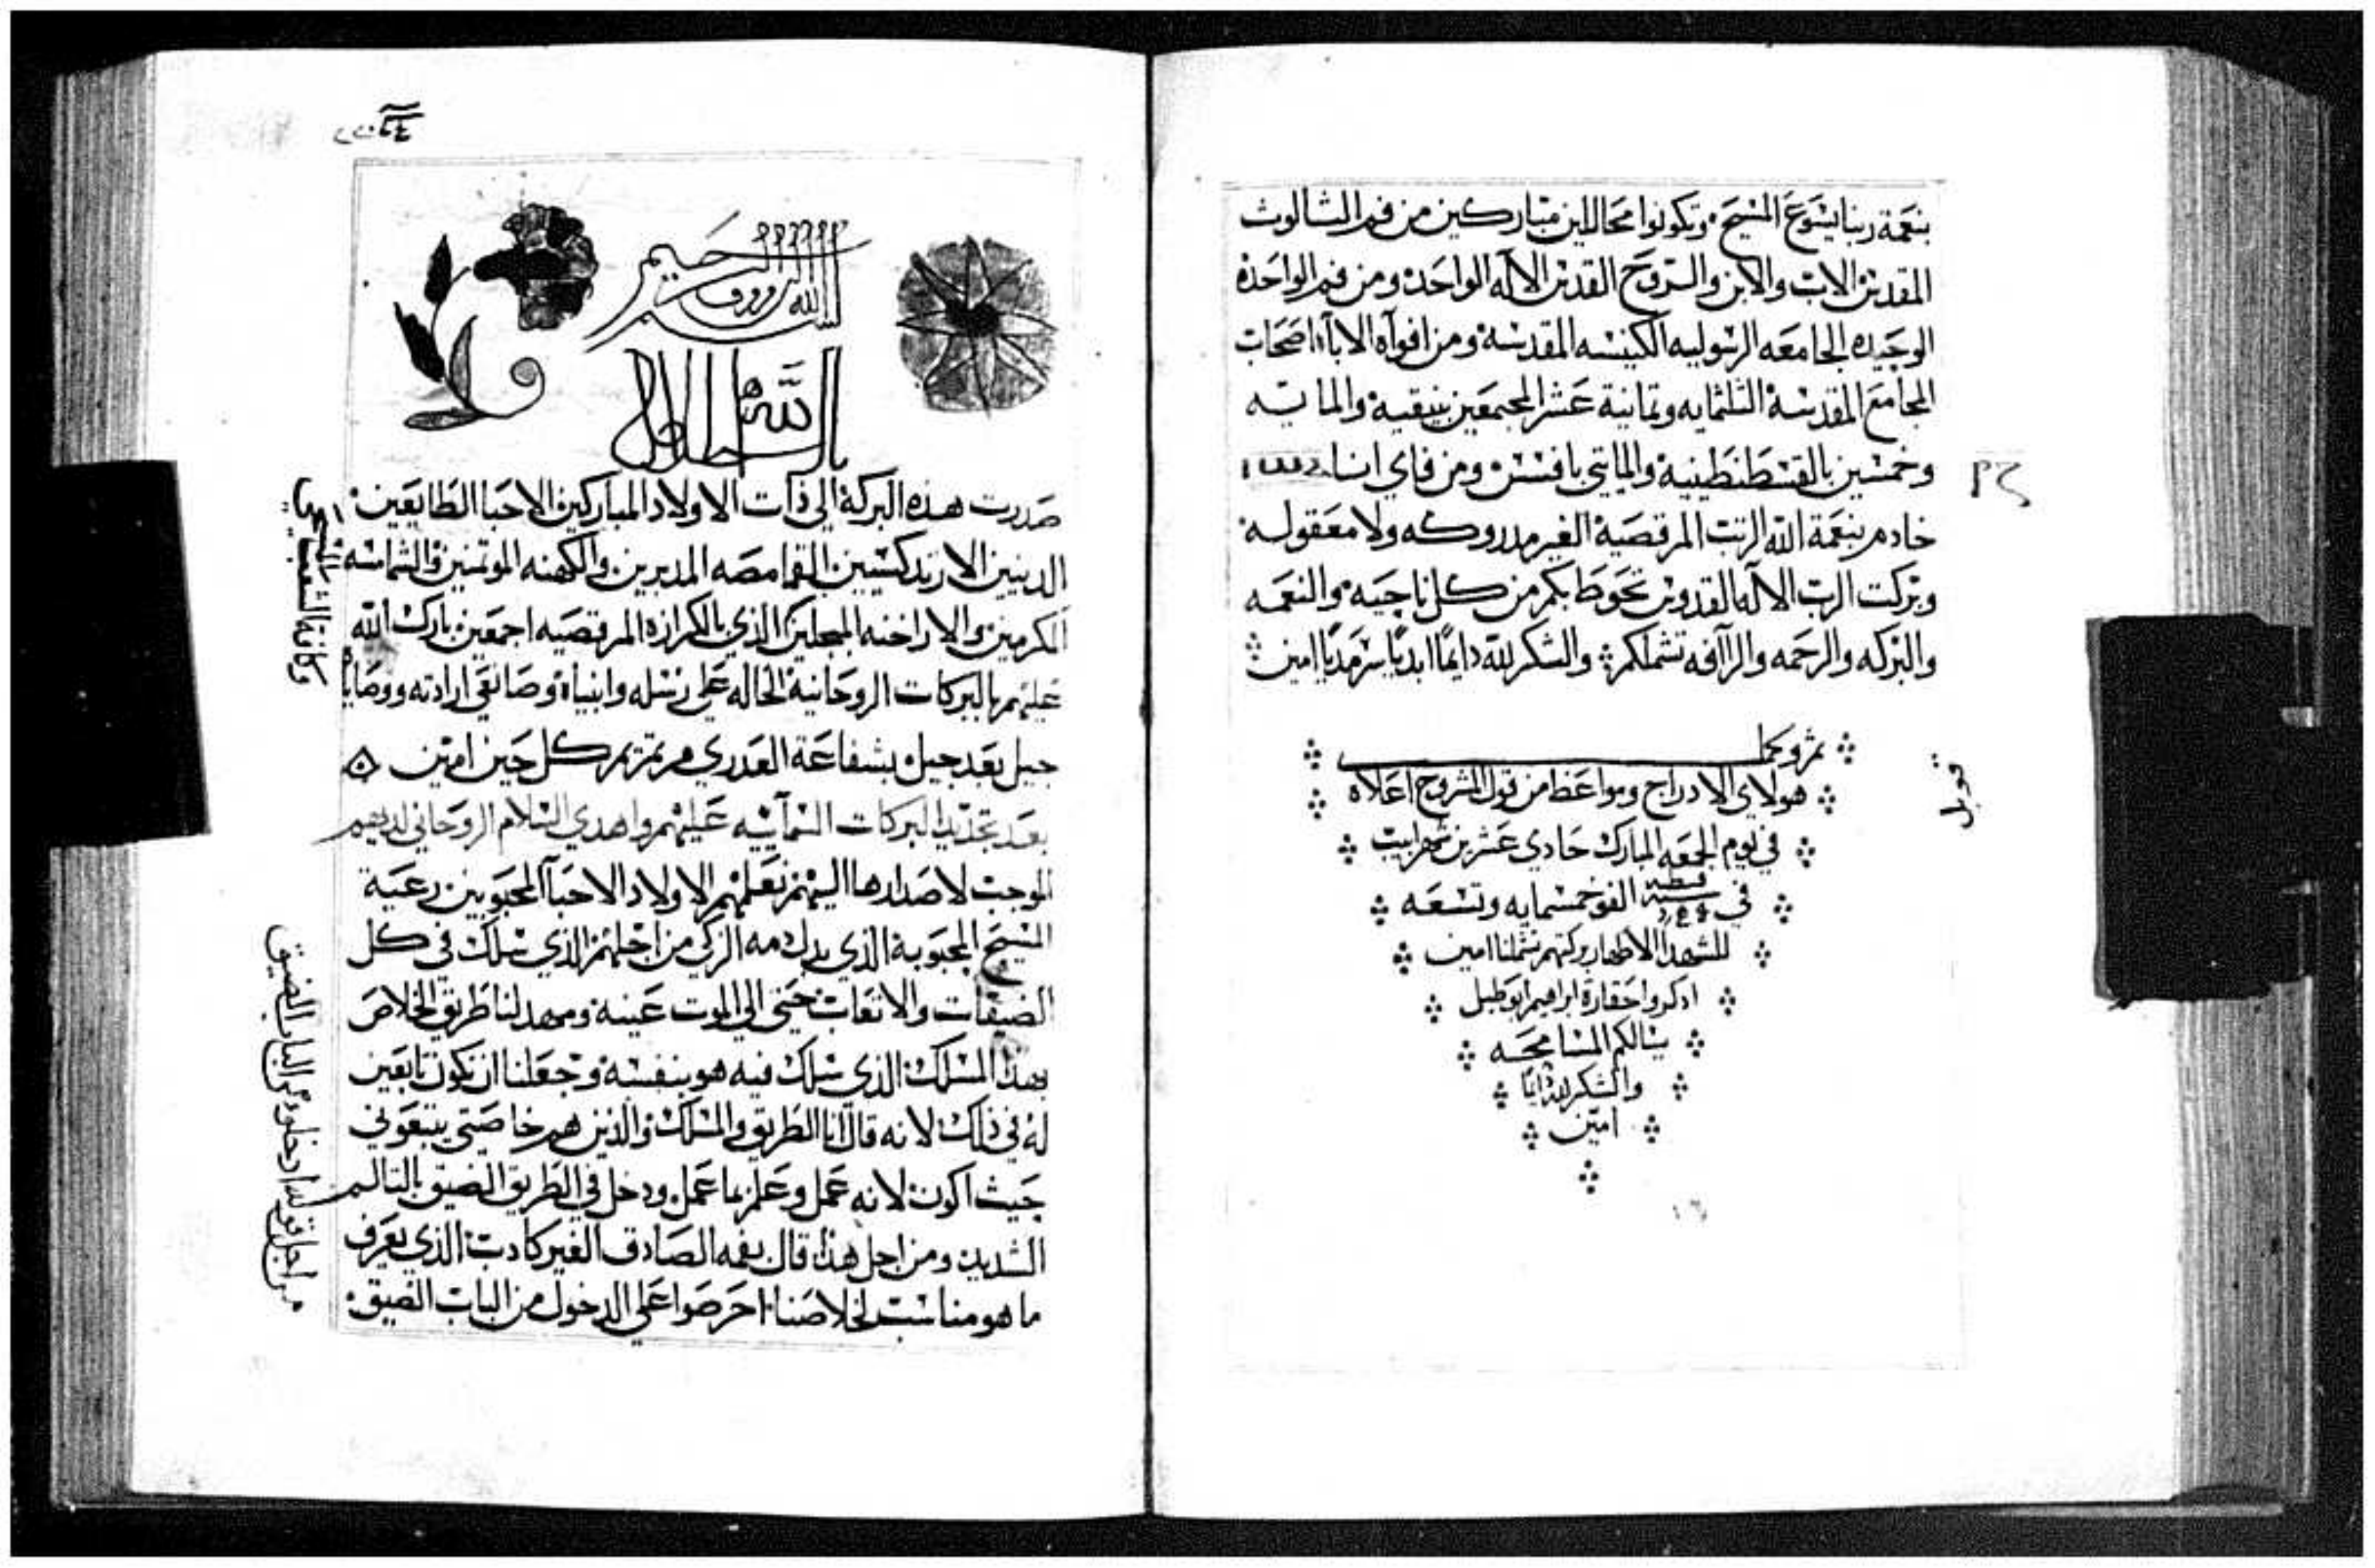 بنعمة ربنا يسوع المسيح وتكونوا محاللين مباركين من فم الثالوث
المقدس الاب والابن والروح القدس الاله الواحد ومن فم الواحدة
الوحيده الجامعه الرسوليه الكنيسه المقدسة ومن افواه الاباء اصحاب
المجامع المقدسة الثلثمايه وثمانية عشر المجتمعين بنيقية والمايه
وخمسين بالقسطنطينية والمايتي بافسس ومن فاي انا
خادم بنعمة الله الرتب المرقصية الغير مدروكه ولا معقوله
وبركت الرب الاله القدوس تحوط بكم من كل ناحيه والنعمه
والبركه والرحمه والراافه تشملكم والشكر لله دايمًا ابديًا سرمديًا امين
تم وكمل
هولاي الادراج ومواعظ من قول المشروح اعلاه
في يوم الجمعه المبارك حادي عشرين شهر ابيب
في سنة قبطيه الف وخمسمايه وتسعه
للشهدا الاطهار بركتهم تشملنا امين
ادكروا حقارة ابراهيم ابو طبل
يسالكم المسامحه
والشكر لله دايمًا
امين
قوبل
بسم الله الرووف الرحيم
صدرت هده البركة الي ذات الاولاد المباركين الاحبا الطايعين
الدينين الارتدكسيين القمامصه المدبرين والكهنه الموتمنين والشمامسه
المكرمين والاراخنه المبجلين الذي بالكرازه المرقصيه اجمعين بارك الله
عليهم بالبركات الروحانية الحاله علي رسله وانبياه وصانعي ارادته ووصاياه
جيل بعد جيل بشفاعة العدري مرتمريم كل حين امين
بعد تجديد البركات السمآييه عليهم واهدي السلام الروحاني لديهم
الموجب لاصدارها اليهم نعلمهم الاولاد الاحبآ المحبوبين رعية
المسيح المحبوبة الذي بدل دمه الزكي من اجلهم الذي سلك في كل
الضيقات والاتعاب حتى الي الموت عينه ومهد لنا طريق الخلاص
بهذا المسلك الذي سلك فيه هو بنفسه وجعلنا ان نكون تابعين
له في ذلك لانه قال انا الطريق والمسلك والذين هم خاصتي يتبعوني
حيث اكون لانه عمل وعلم بما عمل ودخل في الطريق الضيق بالتالم
الشديد ومن اجل هذا قال بفمه الصادق الغير كادب الذي يعرف
ما هو مناسب لخلاصنا احرصوا علي الدخول من الباب الضيق
من اجل قوله ادخلوا من الباب الضيق